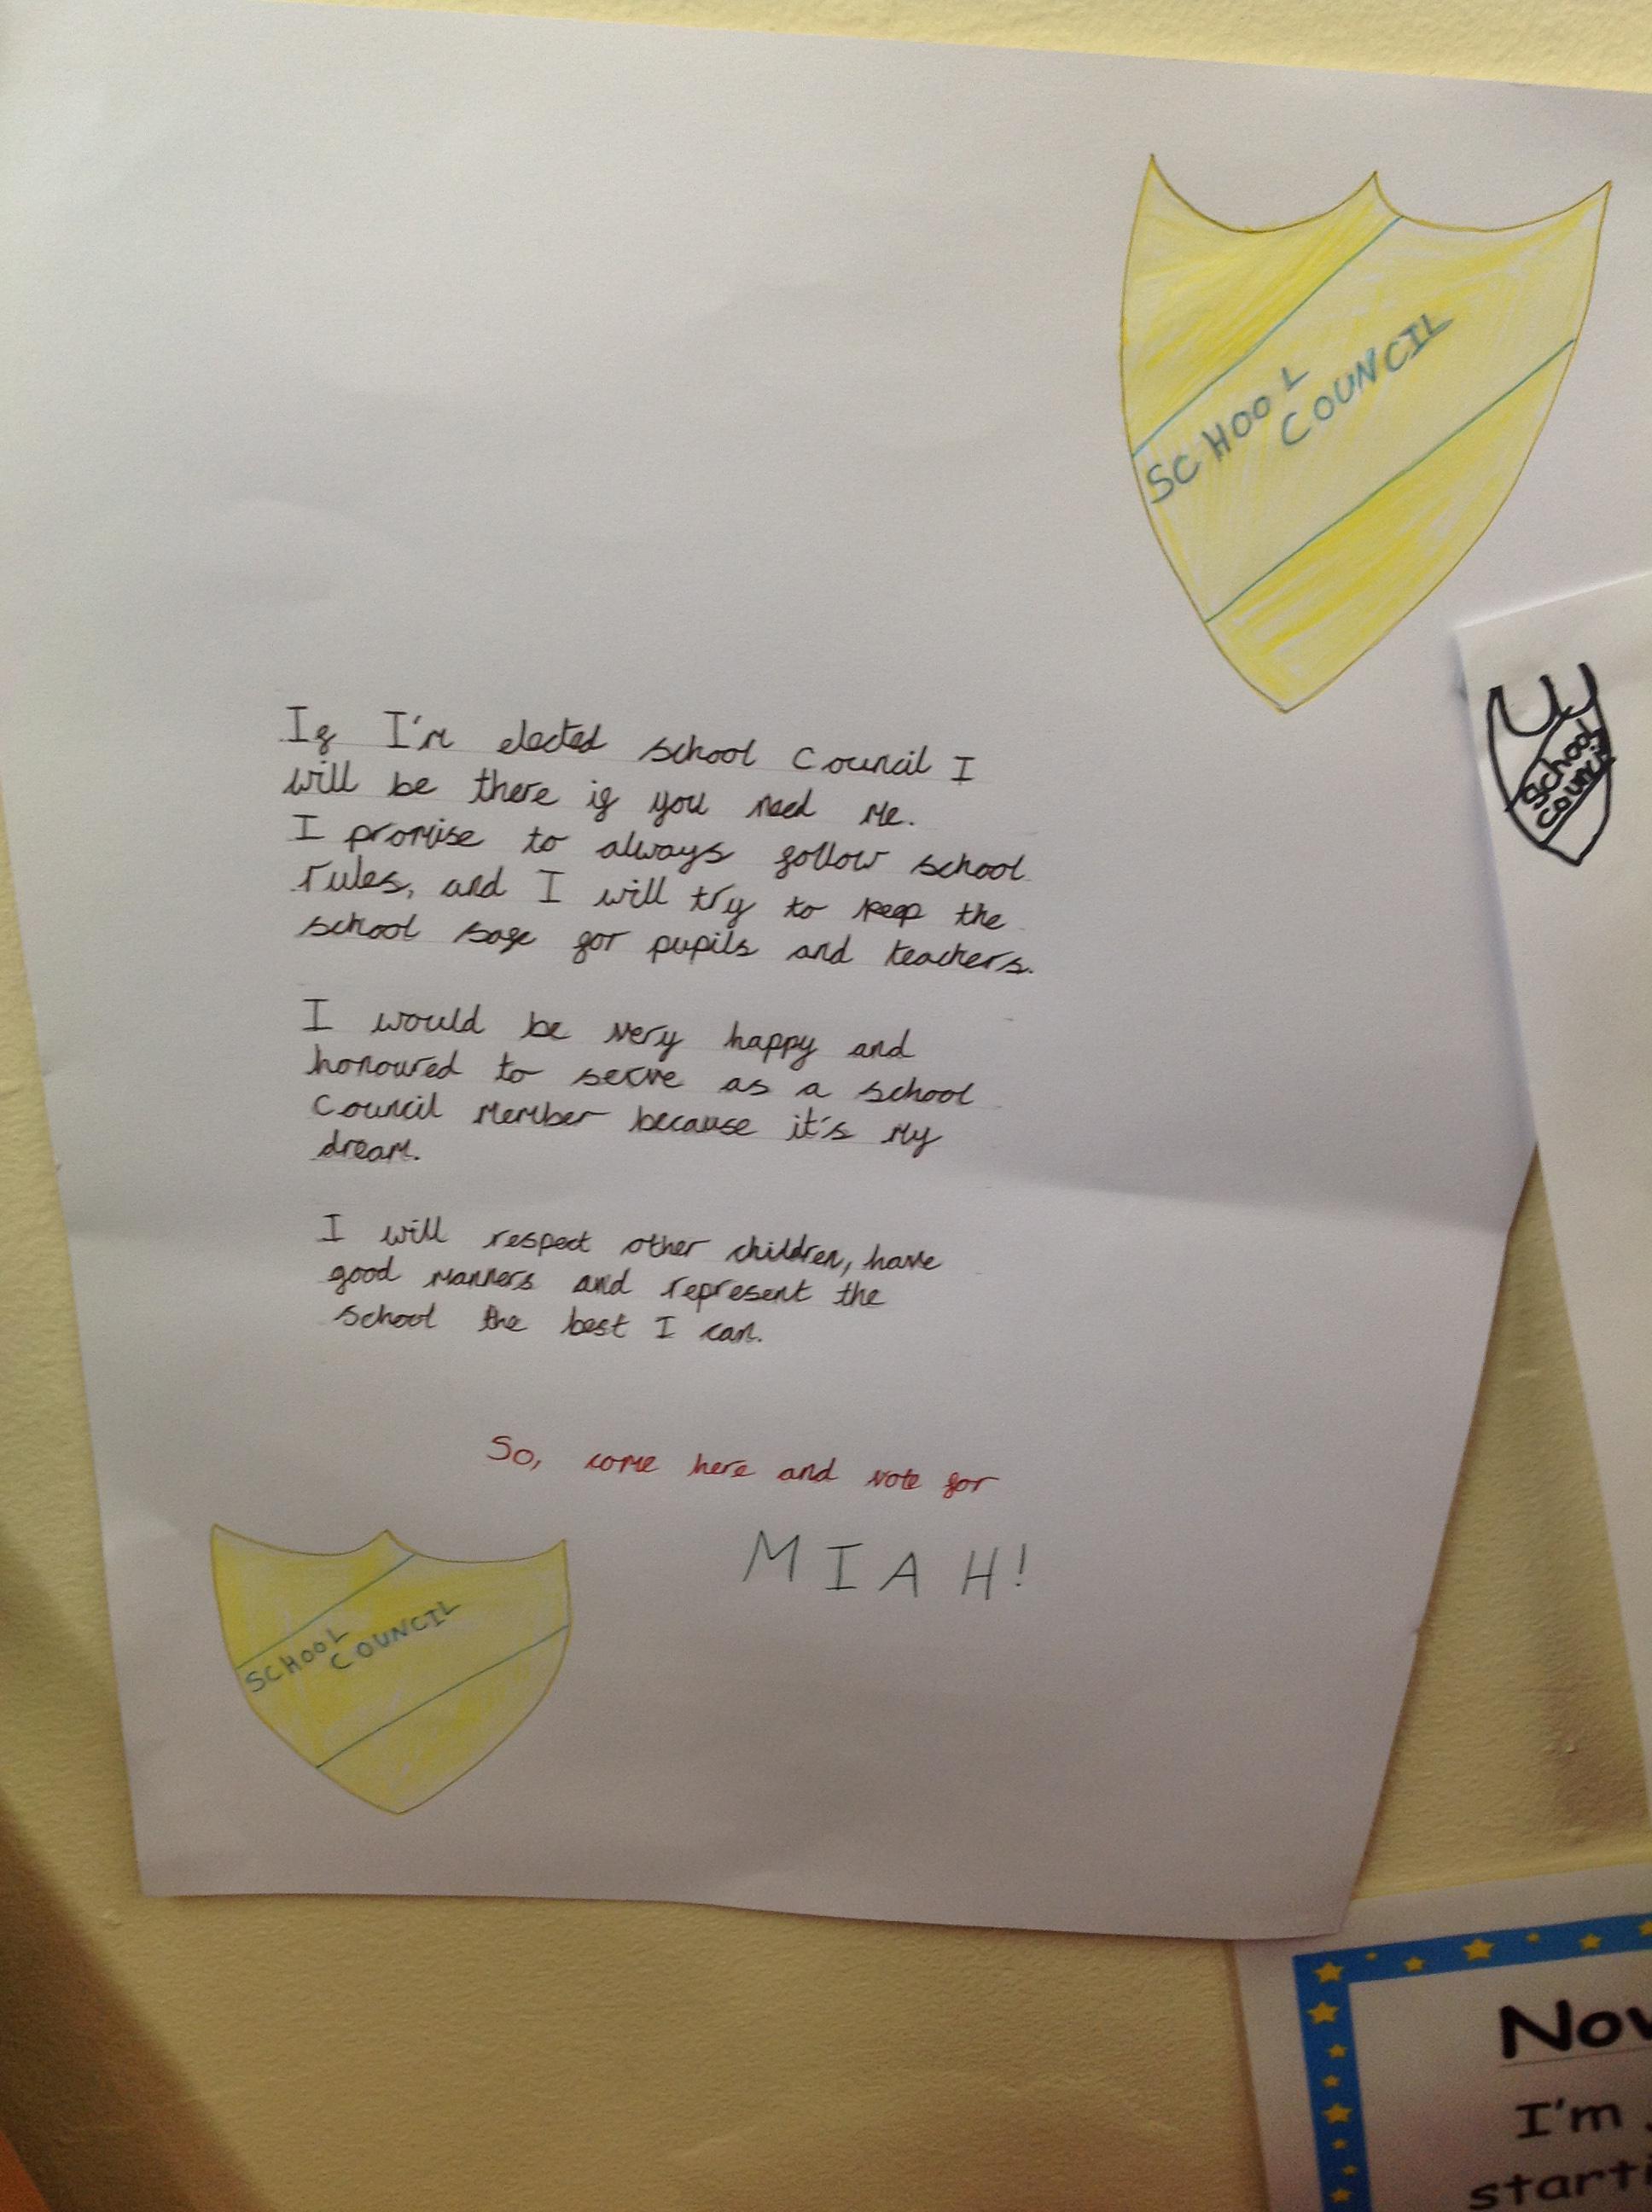 SCHOOL
COUNCIL
School
Council
If I'm elected school Council I
will be there if you need me.
I promise to always follow school
rules, and I will try to keep the
school safe for pupils and teachers.
I would be very happy and
honoured to serve as a school
Council member because it's my
dream.
I will respect other children, have
good manners and represent the
school the best I can.
So, come here and vote for
MIAH!
SCHOOL
COUNCIL
I'm